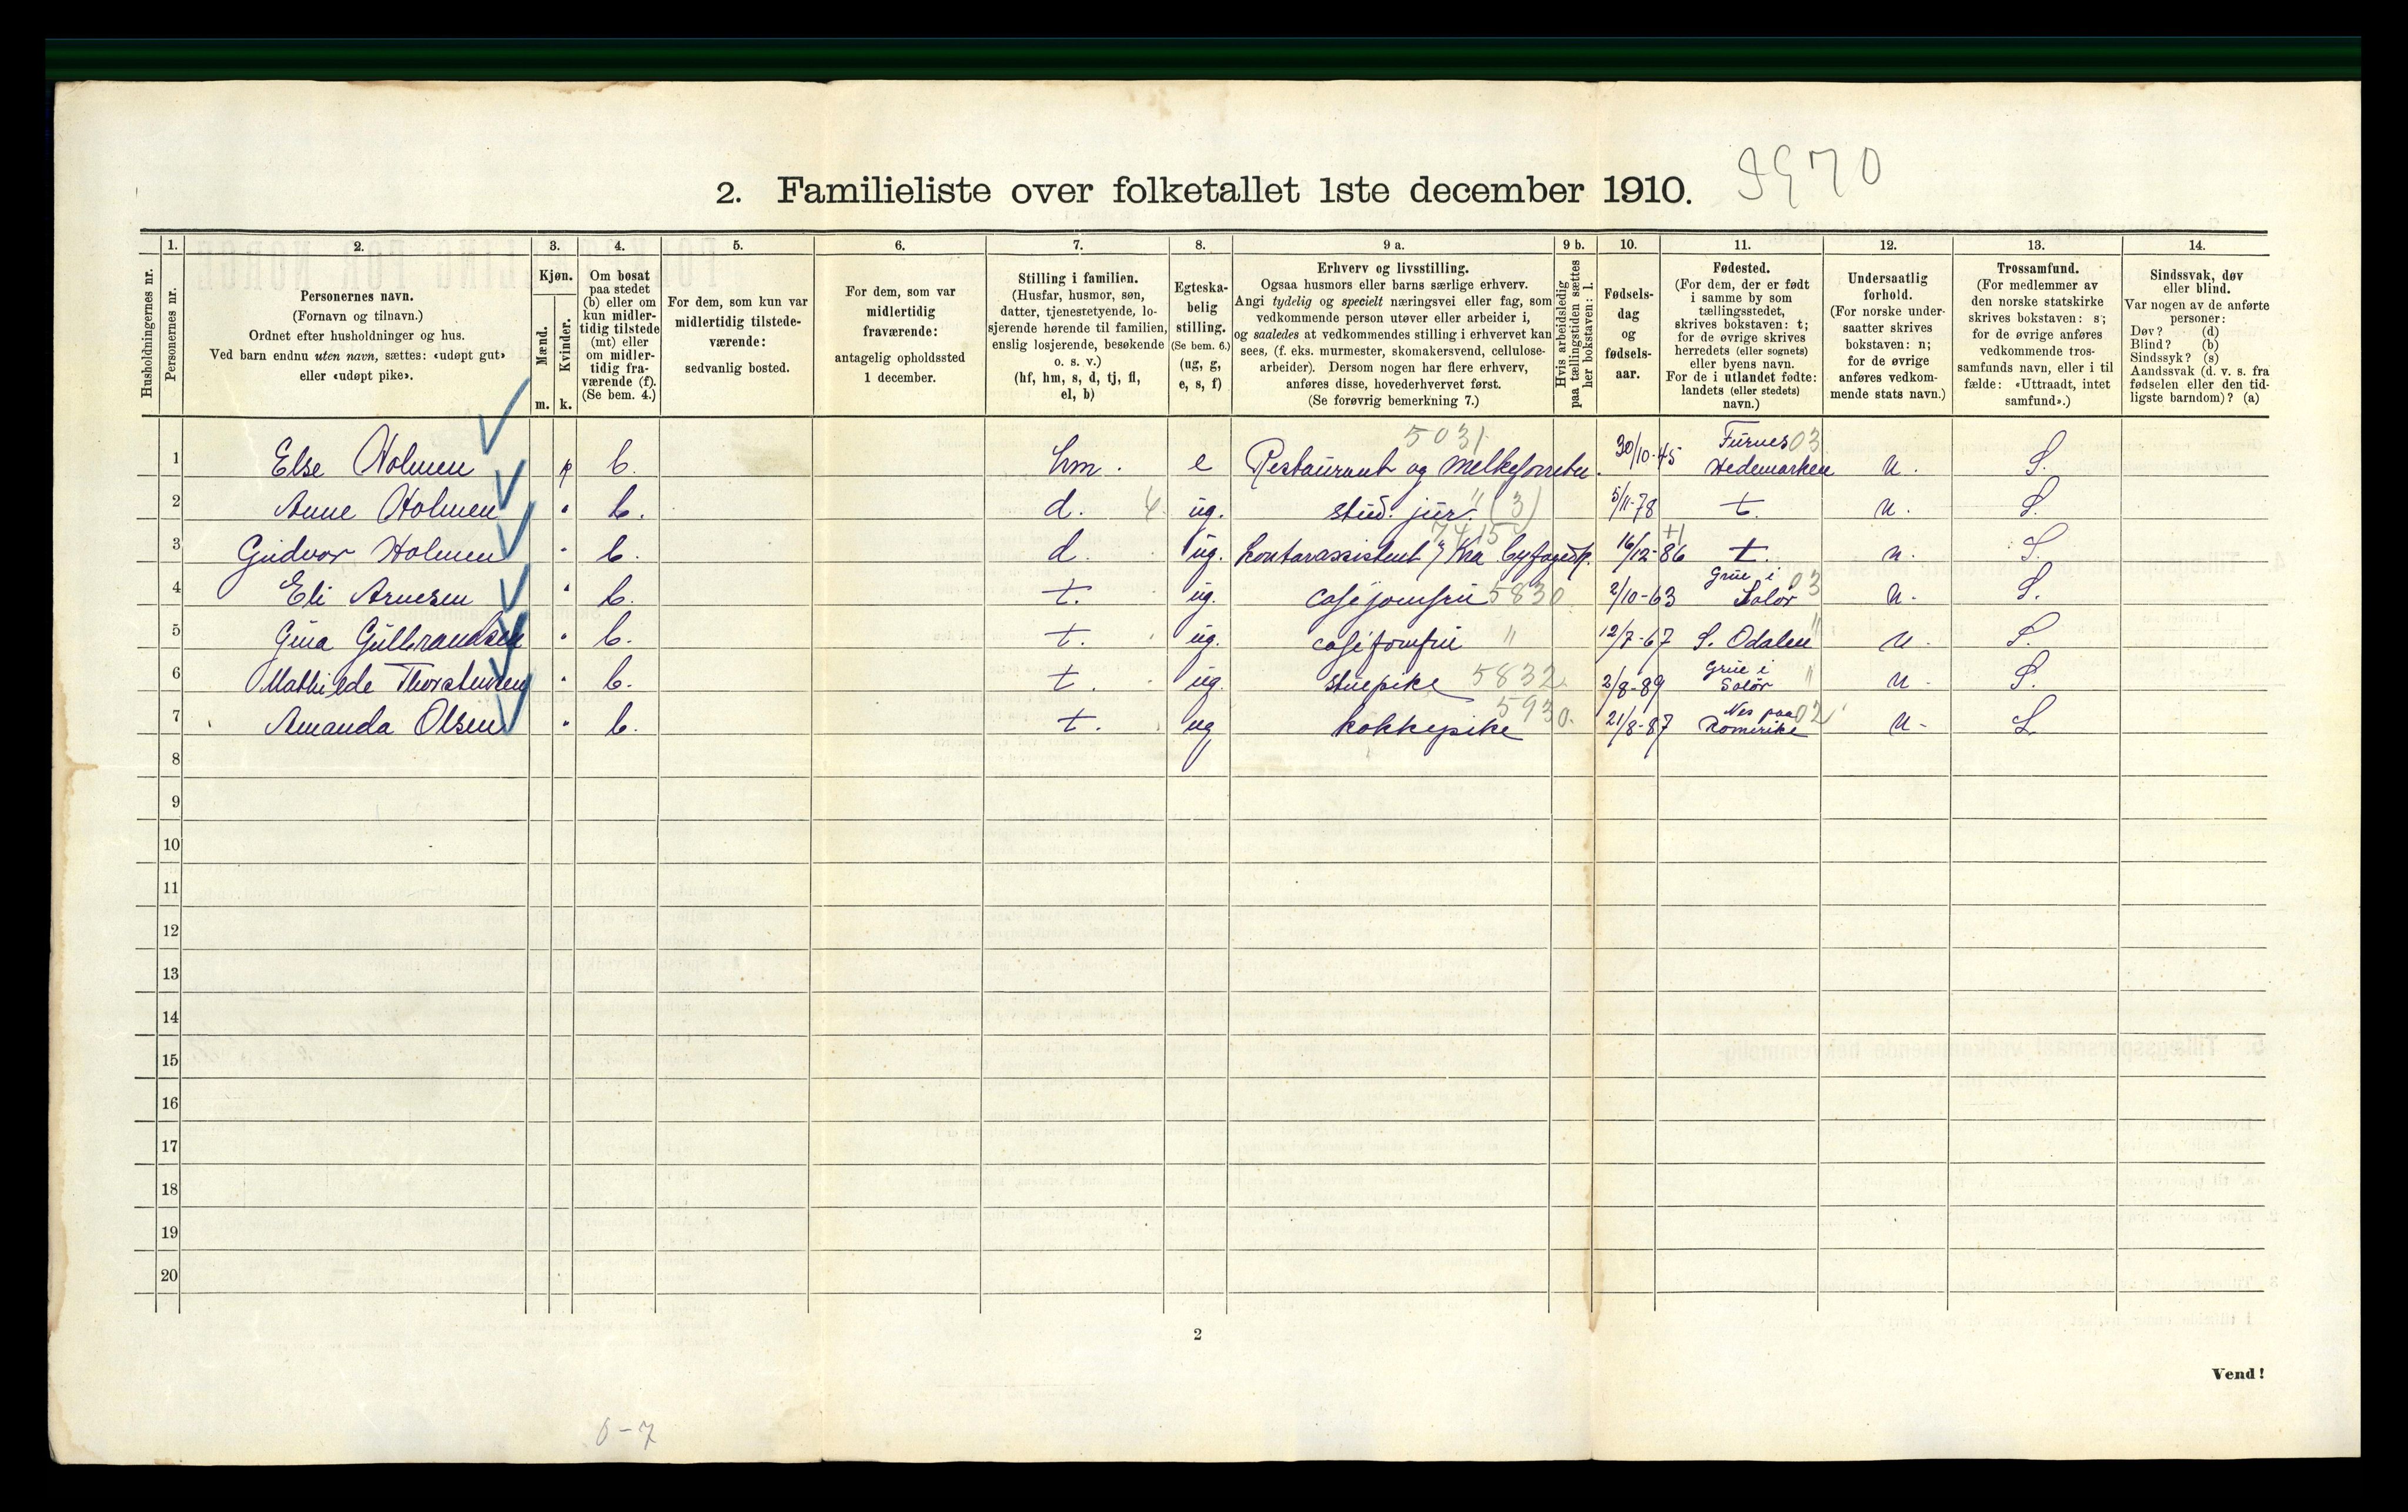 2. Familieliste over folketallet 1ste december 1910. 9970
Husholdningernes nr.
1. Personernes nr.
2. Personernes navn.
(Fornavn og tilnavn.)
Ordnet efter husholdninger og hus.
Ved barn endnu uten navn, sættes: «udøpt gut»
eller «udøpt pike».
3. Kjøn.
Mænd. Kvinder.
m. k.
4. Om bosat
paa stedet
(b) eller om
kun midler-
tidig tilstede
(mt) eller
om midler-
tidig fra-
værende (f).
(Se bem. 4.)
5. For dem, som kun var
midlertidig tilstede-
værende:
sedvanlig bosted.
6. For dem, som var
midlertidig
fraværende:
antagelig opholdssted
1 december.
7. Stilling i familien.
(Husfar, husmor, søn,
datter, tjenestetyende, lo-
sjerende hørende til familien,
enslig losjerende, besøkende
o. s. v.)
(hf, hm, s, d, tj, fl,
el, b)
8. Egteska-
belig
stilling.
(Se bem. 6.)
(ug, g,
e, s, f)
9 a. Erhverv og livsstilling.
Ogsaa husmors eller barns særlige erhverv.
Angi tydelig og specielt næringsvei eller fag, som
vedkommende person utøver eller arbeider i,
og saaledes at vedkommendes stilling i erhvervet kan
sees, (f. eks. murmester, skomakersvend, cellulose-
arbeider). Dersom nogen har flere erhverv,
anføres disse, hovederhvervet først.
(Se forøvrig bemerkning 7.)
9 b. Hvis arbeidsledig
paa tællingstiden sættes
her bokstaven: l.
10. Fødsels-
dag
og
fødsels-
aar.
11. Fødested.
(For dem, der er født
i samme by som
tællingsstedet,
skrives bokstaven: t;
for de øvrige skrives
herredets (eller sognets)
eller byens navn.
For de i utlandet fødte:
landets (eller stedets)
navn.)
12. Undersaatlig
forhold.
(For norske under-
saatter skrives
bokstaven: n;
for de øvrige
anføres vedkom-
mende stats navn.)
13. Trossamfund.
(For medlemmer av
den norske statskirke
skrives bokstaven: s;
for de øvrige anføres
vedkommende tros-
samfunds navn, eller i til
fælde: «Uttraadt, intet
samfund».)
14. Sindssvak, døv
eller blind.
Var nogen av de anførte
personer:
Døv? (d)
Blind? (b)
Sindssyk? (s)
Aandssvak (d. v. s. fra
fødselen eller den tid-
ligste barndom)? (a)
5031 Furnes 03
1 Else Holmen k b. hm. e Restaurant og 30/10-45 Hedemarken n. S.
2 Anne Holmen " b. d. ug. stud. jur. " (3) 5/11-78 t. n. S.
7415
3 Gudvor Holmen " b. d. ug. Kontorassistent 16/12-86 t. n. S.
Grue i 03
4 Eli Arnesen " b. t. ug. caféjomfru 5830 2/10-63 Solør n. S.
5 Gina Gulbrandsen " b. t. ug. caféjomfru " 12/7-67 S. Odalen " n. S.
Grue i
6 Mathilde Thorstensen " b. t. ug. stuepike 5832 2/8-89 Solør " n. S.
5930 Nes paa 02
7 Amanda Olsen " b. t. ug kokkepike 21/8-87 Romerike n. S.
8
9
10
11
12
13
14
15
16
17
18
19
20
2
Vend!
0-7